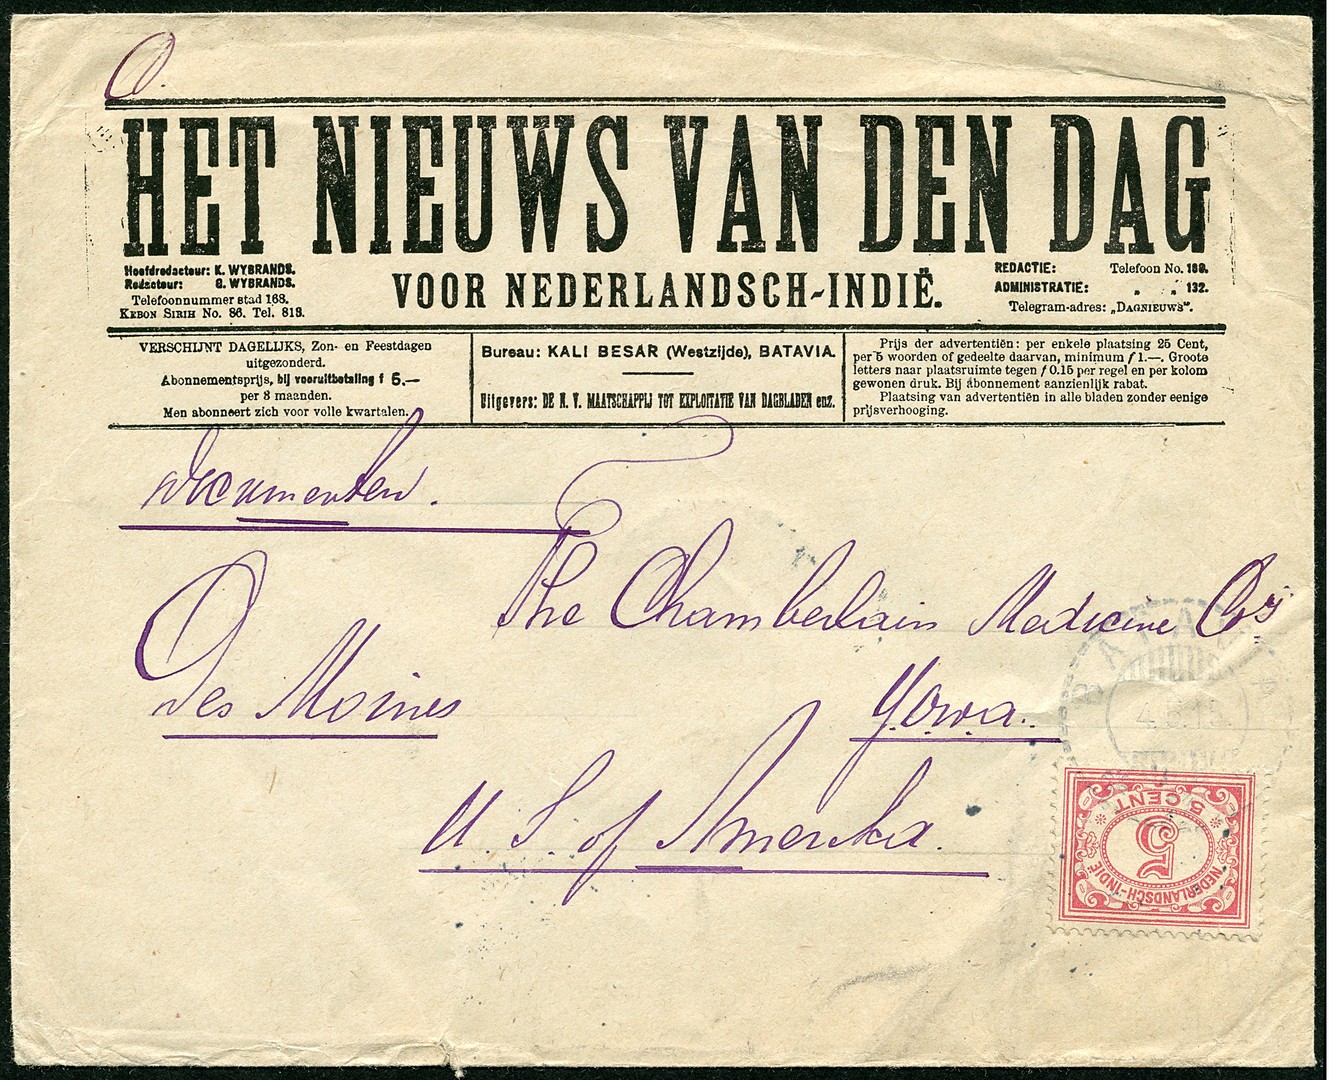 HET NIEUWS VAN DEN DAG
Hoofdredacteur: K. WYBRANDS.
Redacteur: G. WYBRANDS.
Telefoonnummer stad 168.
KEBON SIRIH No. 86. Tel. 813.
VOOR NEDERLANDSCH-INDIË.
REDACTIE: Telefoon No. 168.
ADMINISTRATIE: „ „ 132.
Telegram-adres: „DAGNIEUWS".
VERSCHIJNT DAGELIJKS, Zon- en Feestdagen
uitgezonderd.
Abonnementsprijs, bij vooruitbetaling f 6.—
per 3 maanden.
Men abonneert zich voor volle kwartalen.
Bureau: KALI BESAR (Westzijde), BATAVIA.
Uitgevers: DE N. V. MAATSCHAPPIJ TOT EXPLOITATIE VAN DAGBLADEN enz.
Prijs der advertentiën: per enkele plaatsing 25 Cent,
per 5 woorden of gedeelte daarvan, minimum f 1.—. Groote
letters naar plaatsruimte tegen f 0.15 per regel en per kolom
gewonen druk. Bij abonnement aanzienlijk rabat.
Plaatsing van advertentiën in alle bladen zonder eenige
prijsverhooging.
Documenten.
The Chamberlain Medicine Coij
Des Moines
Yowa.
U. S. of Amerika.
BATAVIA
4.5.15
5 CENT
5
NEDERLANDSCH-INDIË